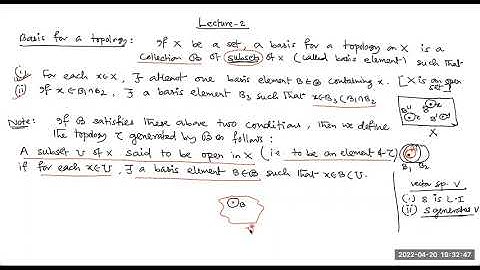 Lecture-2
Basis for a topology: If X be a set, a basis for a topology on X is a
collection B of subsets of X (called basis element) such that
(i) For each x∈X, ∃ atleast one basis element B∈B containing x. [X is an open set]
(ii) If x∈B₁∩B₂, ∃ a basis element B₃ such that x∈B₃⊂B₁∩B₂
X
Note: If B satisfies these above two conditions, then we define
the topology τ generated by B as follows:
A subset U of X said to be open in X (i.e. to be an element of τ)
B₁ B₂
if for each x∈U, ∃ a basis element B∈B such that x∈B⊂U.
vector sp. V
(i) S is L.I
(ii) S generates V
B
2022-04-20 19:32:47